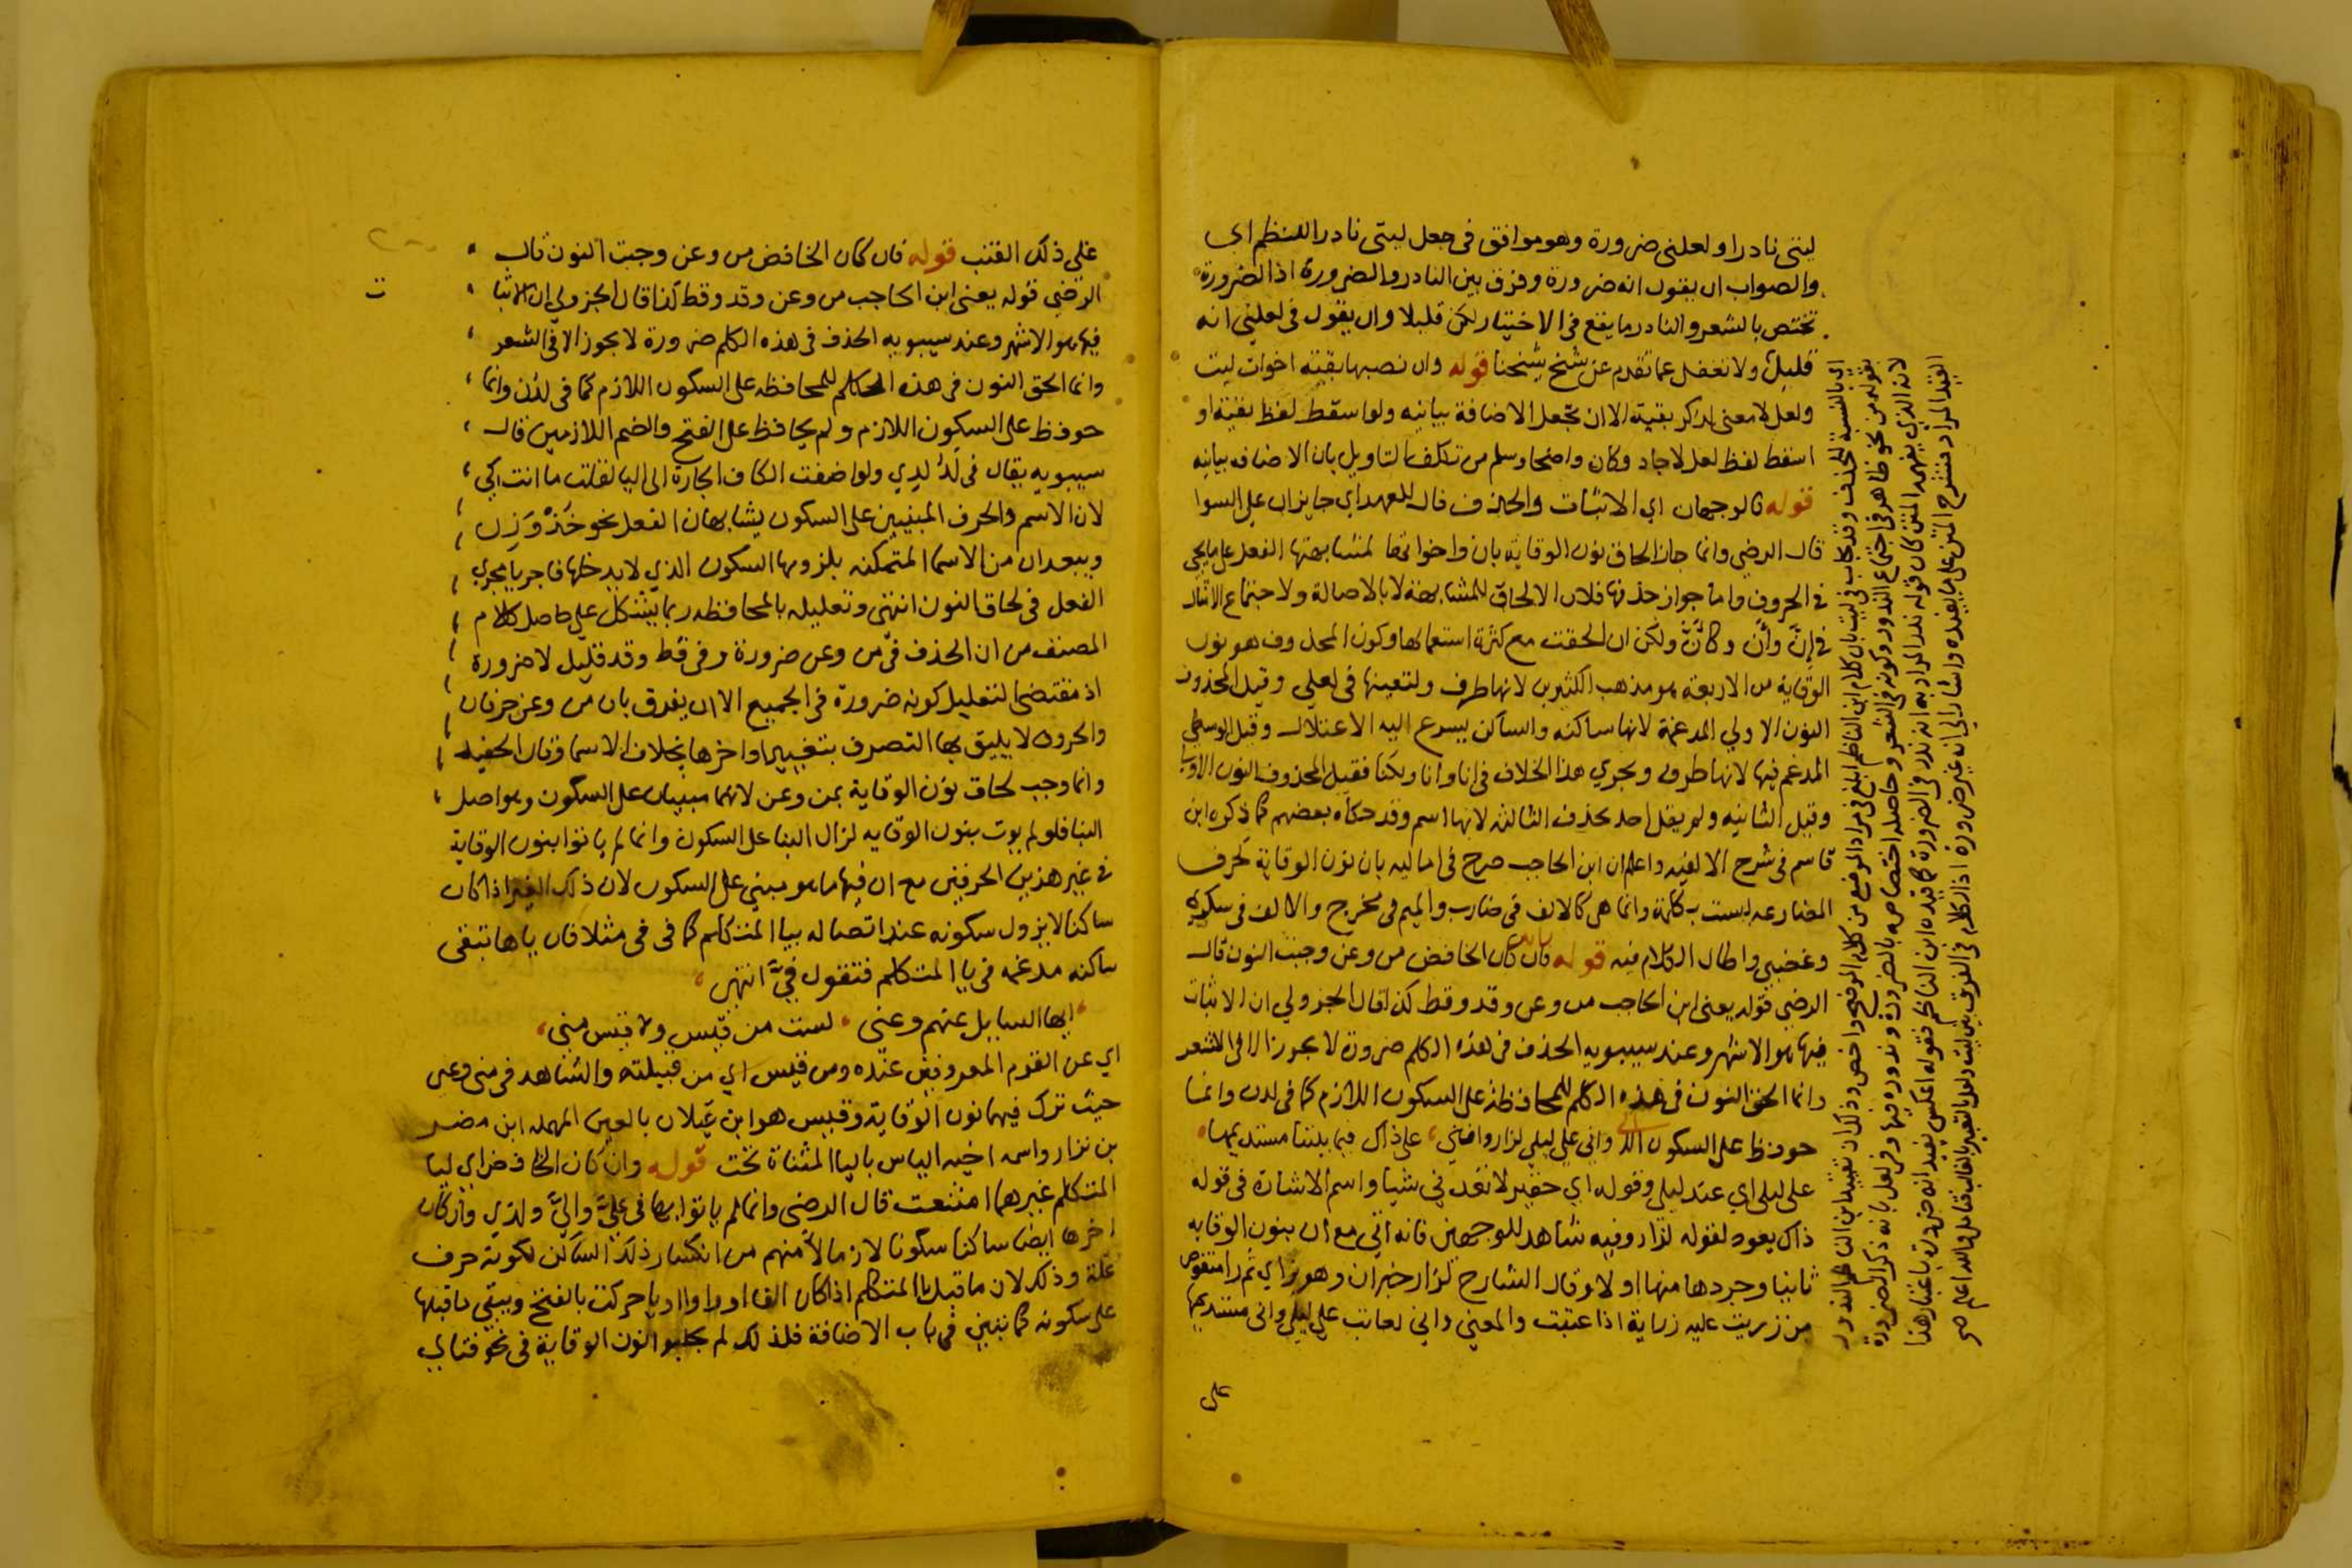 ليتى نادرا ولعلنى ضرورة وهو موافق فى جعل ليتى نادرا للنظم اى
والصواب ان يقول انه ضرورة وفرق بين النادر والضرورة اذ الضرورة
تختص بالشعر والنادر ما يقع فى الاختيار لكن قليلا وان يقول فى لعلنى انه
قليل ولا تغفل عما تقدم عن شيخ شيخنا قوله وان نصبها بقية اخوات ليت
ولعل لا معنى لذكر بقية الا ان تجعل الاضافة بيانيه ولو اسقط لفظ بقية او
اسقط لفظ لعل لاجاد وكان واضحا وسلم من تكلف التاويل بان الاضافه بيانيه
قوله فالوجهان اي الاثبات والحذف فال للعهد اي جايزان على السوا
قال الرضي وانما جاز الحاق نون الوقاية بان واخواتها لمشابهتها الفعل على ما يجي
فى الحروف واما جواز حذفها فلان الالحاق للمشابهة لا بالاصالة ولاجتماع الامثال
فى إنّ وأنّ وكأنّ ولكن ان لحقت مع كثرة استعمالها وكون المحذوف هو نون
الوقاية من الاربعة هو مذهب الكثيرين لانها طرف ولتعينها فى لعلي وقيل المحذوف
النون الاولي المدغمة لانها ساكنه والساكن يسرع اليه الاعتلال وقيل الوسطى
المدغم فيها لانها طرف ويجري هذا الخلاف فى انا وانا ولكنا فقيل المحذوف النون الاولى
وقيل الثانيه ولم يقل احد بحذف الثالثه لانها اسم وقد حكاه بعضهم كما ذكره ابن
قاسم فى شرح الالفيه واعلم ان ابن الحاجب صرح فى اماليه بان نون الوقاية كحرف
المضارعه ليست بكلمة وانما هى كالالف فى ضارب والميم فى مخرج والالف فى سكرى
وغضبى واطال الكلام فيه قوله فان كان الخافض من وعن وجبت النون قال
الرضي قوله يعنى ابن الحاجب من وعن وقد وقط كذا قال الجزولي ان الاثبات
فيها هو الاشهر وعند سيبويه الحذف فى هذه الكلم ضرورة لا يجوز الا فى الشعر
وانما الحق النون فى هذه الكلم للمحافظة على السكون اللازم كما فى لدن وانما
حوفظ على السكون وانى على ليلى لزار واننى، على ذاك فيما بيننا مستديمها
على ليلى اي عند ليلى وقوله اي حقير لا تعدنى شيا واسم الاشارة فى قوله
ذاك يعود لقوله لزار وفيه شاهد للوجهين فانه اتى مع ان بنون الوقايه
ثانيا وجردها منها اولا وقال الشارح لزار خبر ان وهو زاي ثم را منقوص
من زريت عليه زراية اذا عتبت والمعنى وانى لعاتب على ليلى وانى مستديمها
على
اي بالنسبة للحذف وقد يجاب فى ليت بان كلام ابن الناظم ابلغ فى مراد الموضح من كلام الموضح واخص وذلك ان تقييد ابن الناظم الندور
بقوله من نحو ظاهر فى اجتماع الندور وكونه فى الشعر وحاصله اختصاصه بالضرورة وندوره فيها وفى لعل بانه ذكر الضرورة
لانه الذي يفهمه المتن كان قوله ندر المراد به انه ندر فى الضرورة كما قيده ابن الناظم فقوله اعكس يفيد انه ضرورة باعتبار هذا
القيد المراد فشرح المتن على ما يفيده واشار الى انه غير ضرورة اذ الكلام فى الفرق بين ليت ولعل بالتعبير بالغالب فتامل والله اعلم صح
على ذلك العتب قوله فان كان الخافض من وعن وجبت النون قال
الرضى قوله يعنى ابن الحاجب من وعن وقد وقط كذا قال الجزولي ان الاثبا
ت
فيها هو الاشهر وعند سيبويه الحذف فى هذه الكلم ضرورة لا يجوز الا فى الشعر
وانما الحق النون فى هذه الكلم للمحافظه على السكون اللازم كما فى لدن وانما
حوفظ على السكون اللازم ولم يحافظ على الفتح والضم اللازمين قال
سيبويه يقال فى لدُ لدي ولو اضفت الكاف الجارة الى اليا لقلت ما انت كي
لان الاسم والحرف المبنيين على السكون يشابهان الفعل نحو خُذْ وَزِن
ويبعدان من الاسما المتمكنه بلزومها السكون الذي لا يدخلها فاجريا مجري
الفعل فى لحاق النون انتهى وتعليله بالمحافظه ربما يشكل على حاصل كلام
المصنف من ان الحذف فى من وعن ضرورة وفى قط وقد قليل لا ضرورة
اذ مقتضى التعليل كونه ضرورة فى الجميع الا ان يفرق بان من وعن حرفان
والحروف لا يليق بها التصرف بتغيير اواخرها بخلاف الاسما وقال الحفيد
وانما وجب لحاق نون الوقاية بمن وعن لانهما مبنيان على السكون وهو اصل
البنا فلو لم يوت بنون الوقايه لزال البنا على السكون وانما لم ياتوا بنون الوقاية
فى غير هذين الحرفين مع ان فيها ما هو مبني على السكون لان ذلك الغير اذا كان
ساكنا لا يزول سكونه عند اتصاله بيا المتكلم كما فى فى مثلا فان ياها تبقى
ساكنه مدغمه فى يا المتكلم فتقول فيَّ انتهى
ايها السايل عنهم وعنى لست من قيس ولا قيس منى
اي عن القوم المعروفين عنده ومن قيس اي من قبيلته والشاهد فى منى وعنى
حيث ترك فيهما نون الوقاية وقيس هو ابن عيلان بالعين المهمله ابن مضر
بن نزار واسمه اخيه الياس باليا المثناة تحت قوله وان كان الخافض اي ليا
المتكلم غيرهما امتنعت قال الرضى وانما لم ياتوا بها فى عليَّ واليَّ ولدَي وان كان
اخرها ايضا ساكنا سكونا لازما لأمنهم من انكسار ذلك الساكن لكونه حرف
علة وذلك لان ما قبل يا المتكلم اذا كان الفا او واوا او يا حركت بالفتح ويبقى ما قبلها
على سكونه كما يتبين فى باب الاضافة فلذلك لم يجلبوا النون الوقاية فى نحو فتاي